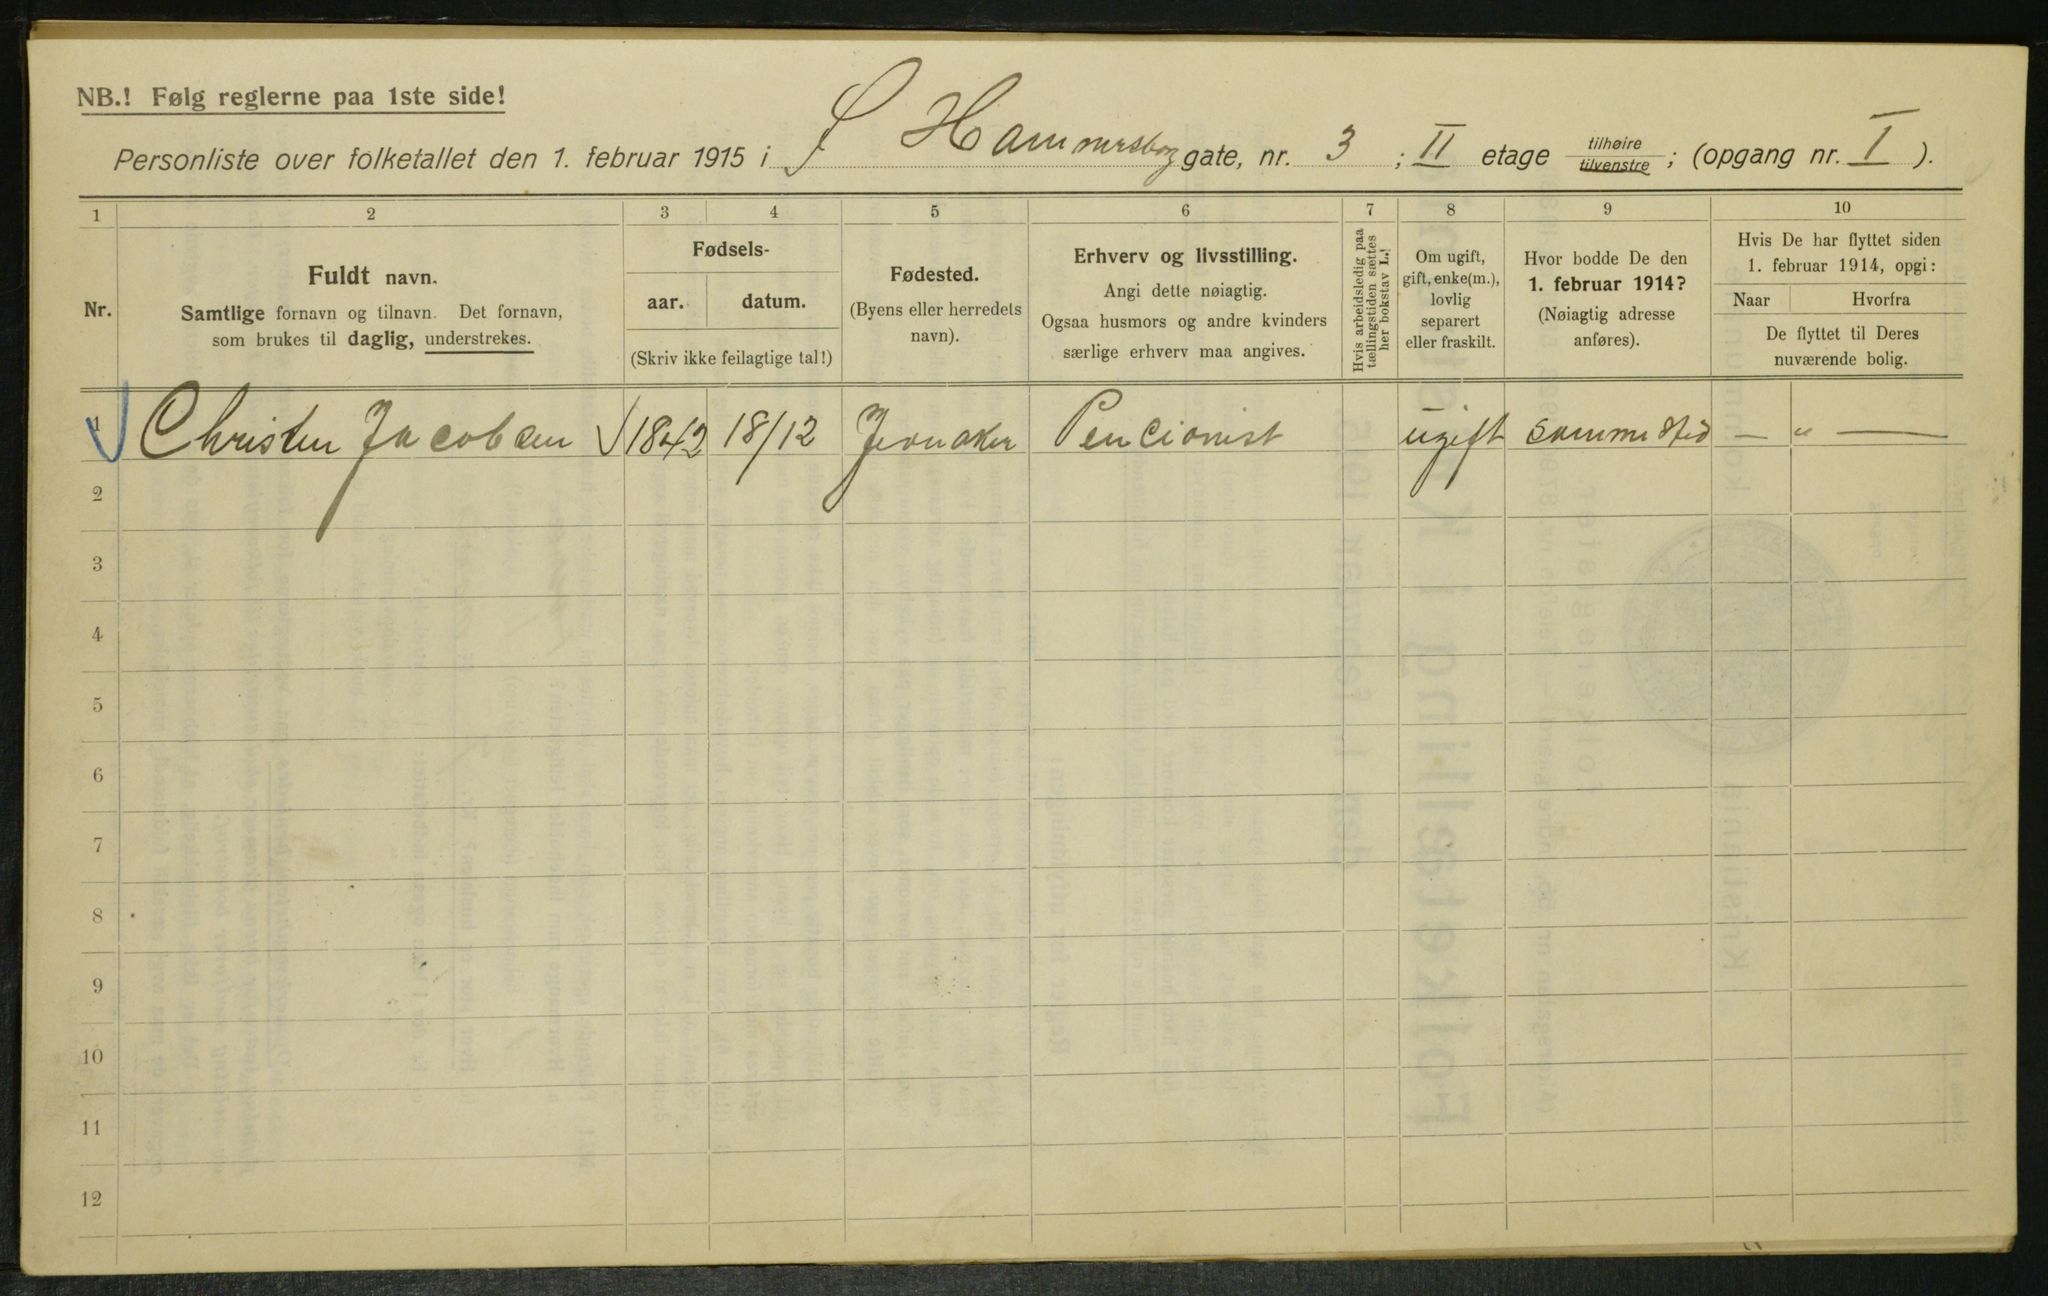 NB.! Følg reglerne paa 1ste side!
Personliste over folketallet den 1. februar 1915 i S Hammersborg gate, nr. 3 ; II etage tilhøire tilvenstre ; (opgang nr. I ).
1 2 3 4 5 6 7 8 9 10
Nr.
Fuldt navn.
Samtlige fornavn og tilnavn. Det fornavn,
som brukes til daglig, understrekes.
Fødsels-
aar. datum.
(Skriv ikke feilagtige tal!)
Fødested.
(Byens eller herredets
navn).
Erhverv og livsstilling.
Angi dette nøiagtig.
Ogsaa husmors og andre kvinders
særlige erhverv maa angives.
Hvis arbeidsledig paa
tællingstiden sættes
her bokstav L.!
Om ugift,
gift, enke(m.),
lovlig
separert
eller fraskilt.
Hvor bodde De den
1. februar 1914?
(Nøiagtig adresse
anføres).
Hvis De har flyttet siden
1. februar 1914, opgi:
Naar Hvorfra
De flyttet til Deres
nuværende bolig.
1 Christen Jacobsen 1842 18/12 Jevnaker Pencionist ugift samme sted — „ —
2
3
4
5
6
7
8
9
10
11
12